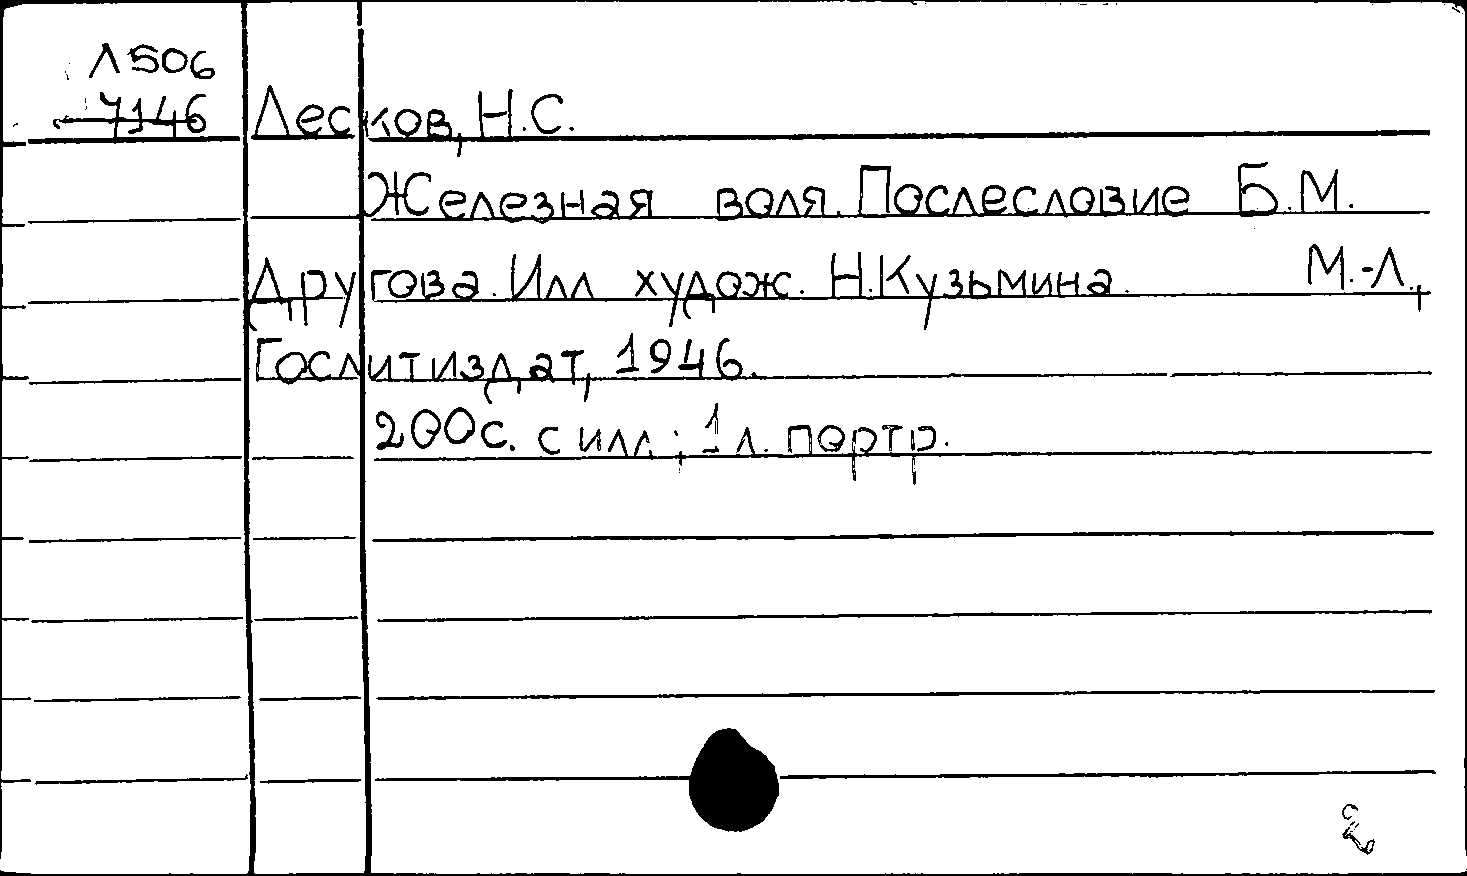 Л506
7146
Лесков, Н.С.
Железная воля. Послесловие Б.М.
Другова. Илл худож. Н.Кузьмина. М.-Л.,
Гослитиздат, 1946.
200с. с илл.; 1 л. портр.